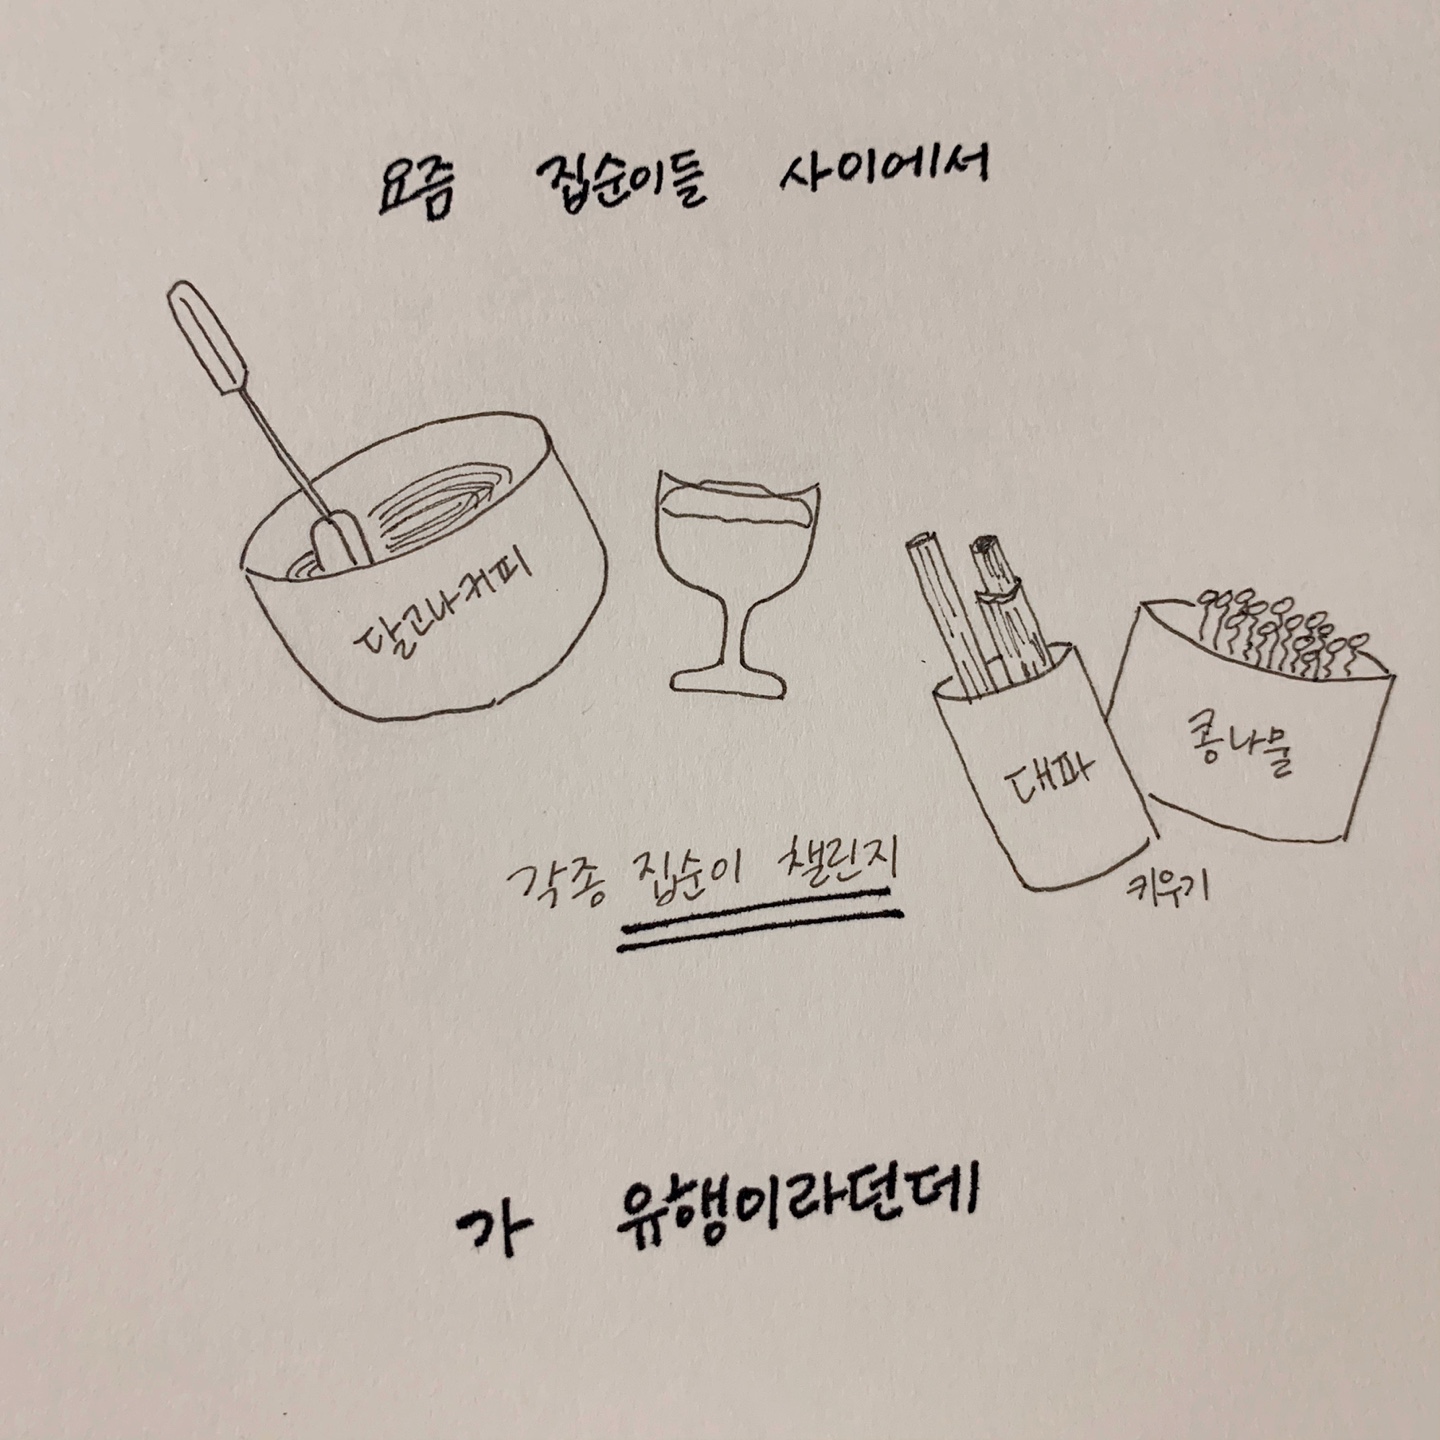 요즘 집순이들 사이에서
달고나커피
대파
콩나물
키우기
각종 집순이 챌린지
가 유행이라던데